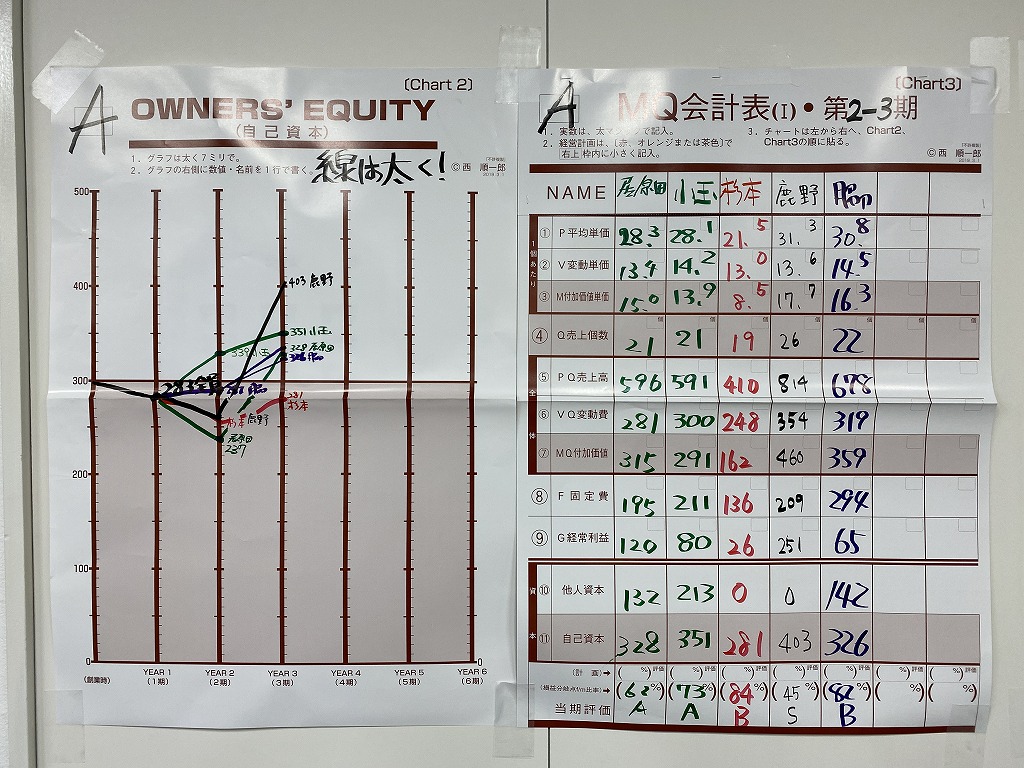 (Chart 2)
A
OWNERS' EQUITY
(自己資本)
1. グラフは太く7ミリで。
2. グラフの右側に数値・名前を1行で書く。
線は太く!
©西 順一郎
500
400
300
200
100
0
0
403 鹿野
351 小玉
339 小玉
328 居原田
283 全員
281
杉本
杉本 鹿野
居原田
237
(創業時)
YEAR 1 YEAR 2 YEAR 3 YEAR 4 YEAR 5 YEAR 6
(1期) (2期) (3期) (4期) (5期) (6期)
(Chart3)
A
MQ会計表(I)・第2-3期
1. 実数は、太マジックで記入。
2. 経営計画は、(赤、オレンジまたは茶色)で
右上枠内に小さく記入。
3. チャートは左から右へ、Chart2、
Chart3の順に貼る。
©西 順一郎
NAME 居原田 小玉 杉本 鹿野
1個あたり
① P平均単価 28.3 28.1 21.5 31.3 30.8
② V変動単価 13.4 14.2 13.0 13.6 14.5
③ M付加価値単価 15.0 13.9 8.5 17.7 16.3
④ Q売上個数 21 21 19 26 22
全体
⑤ PQ売上高 596 591 410 814 678
⑥ VQ変動費 281 300 248 354 319
⑦ MQ付加価値 315 291 162 460 359
⑧ F固定費 195 211 136 209 294
⑨ G経常利益 120 80 26 251 65
資本
⑩ 他人資本 132 213 0 0 142
⑪ 自己資本 328 351 281 403 326
(計画)→ ( %)評価 ( %)評価 ( %)評価 ( %)評価 ( %)評価 ( %)評価 ( %)評価
(損益分岐点f/m比率)→ (62%) (73%) (84%) (45%) (82%) ( %) ( %)
当期評価 A A B S B